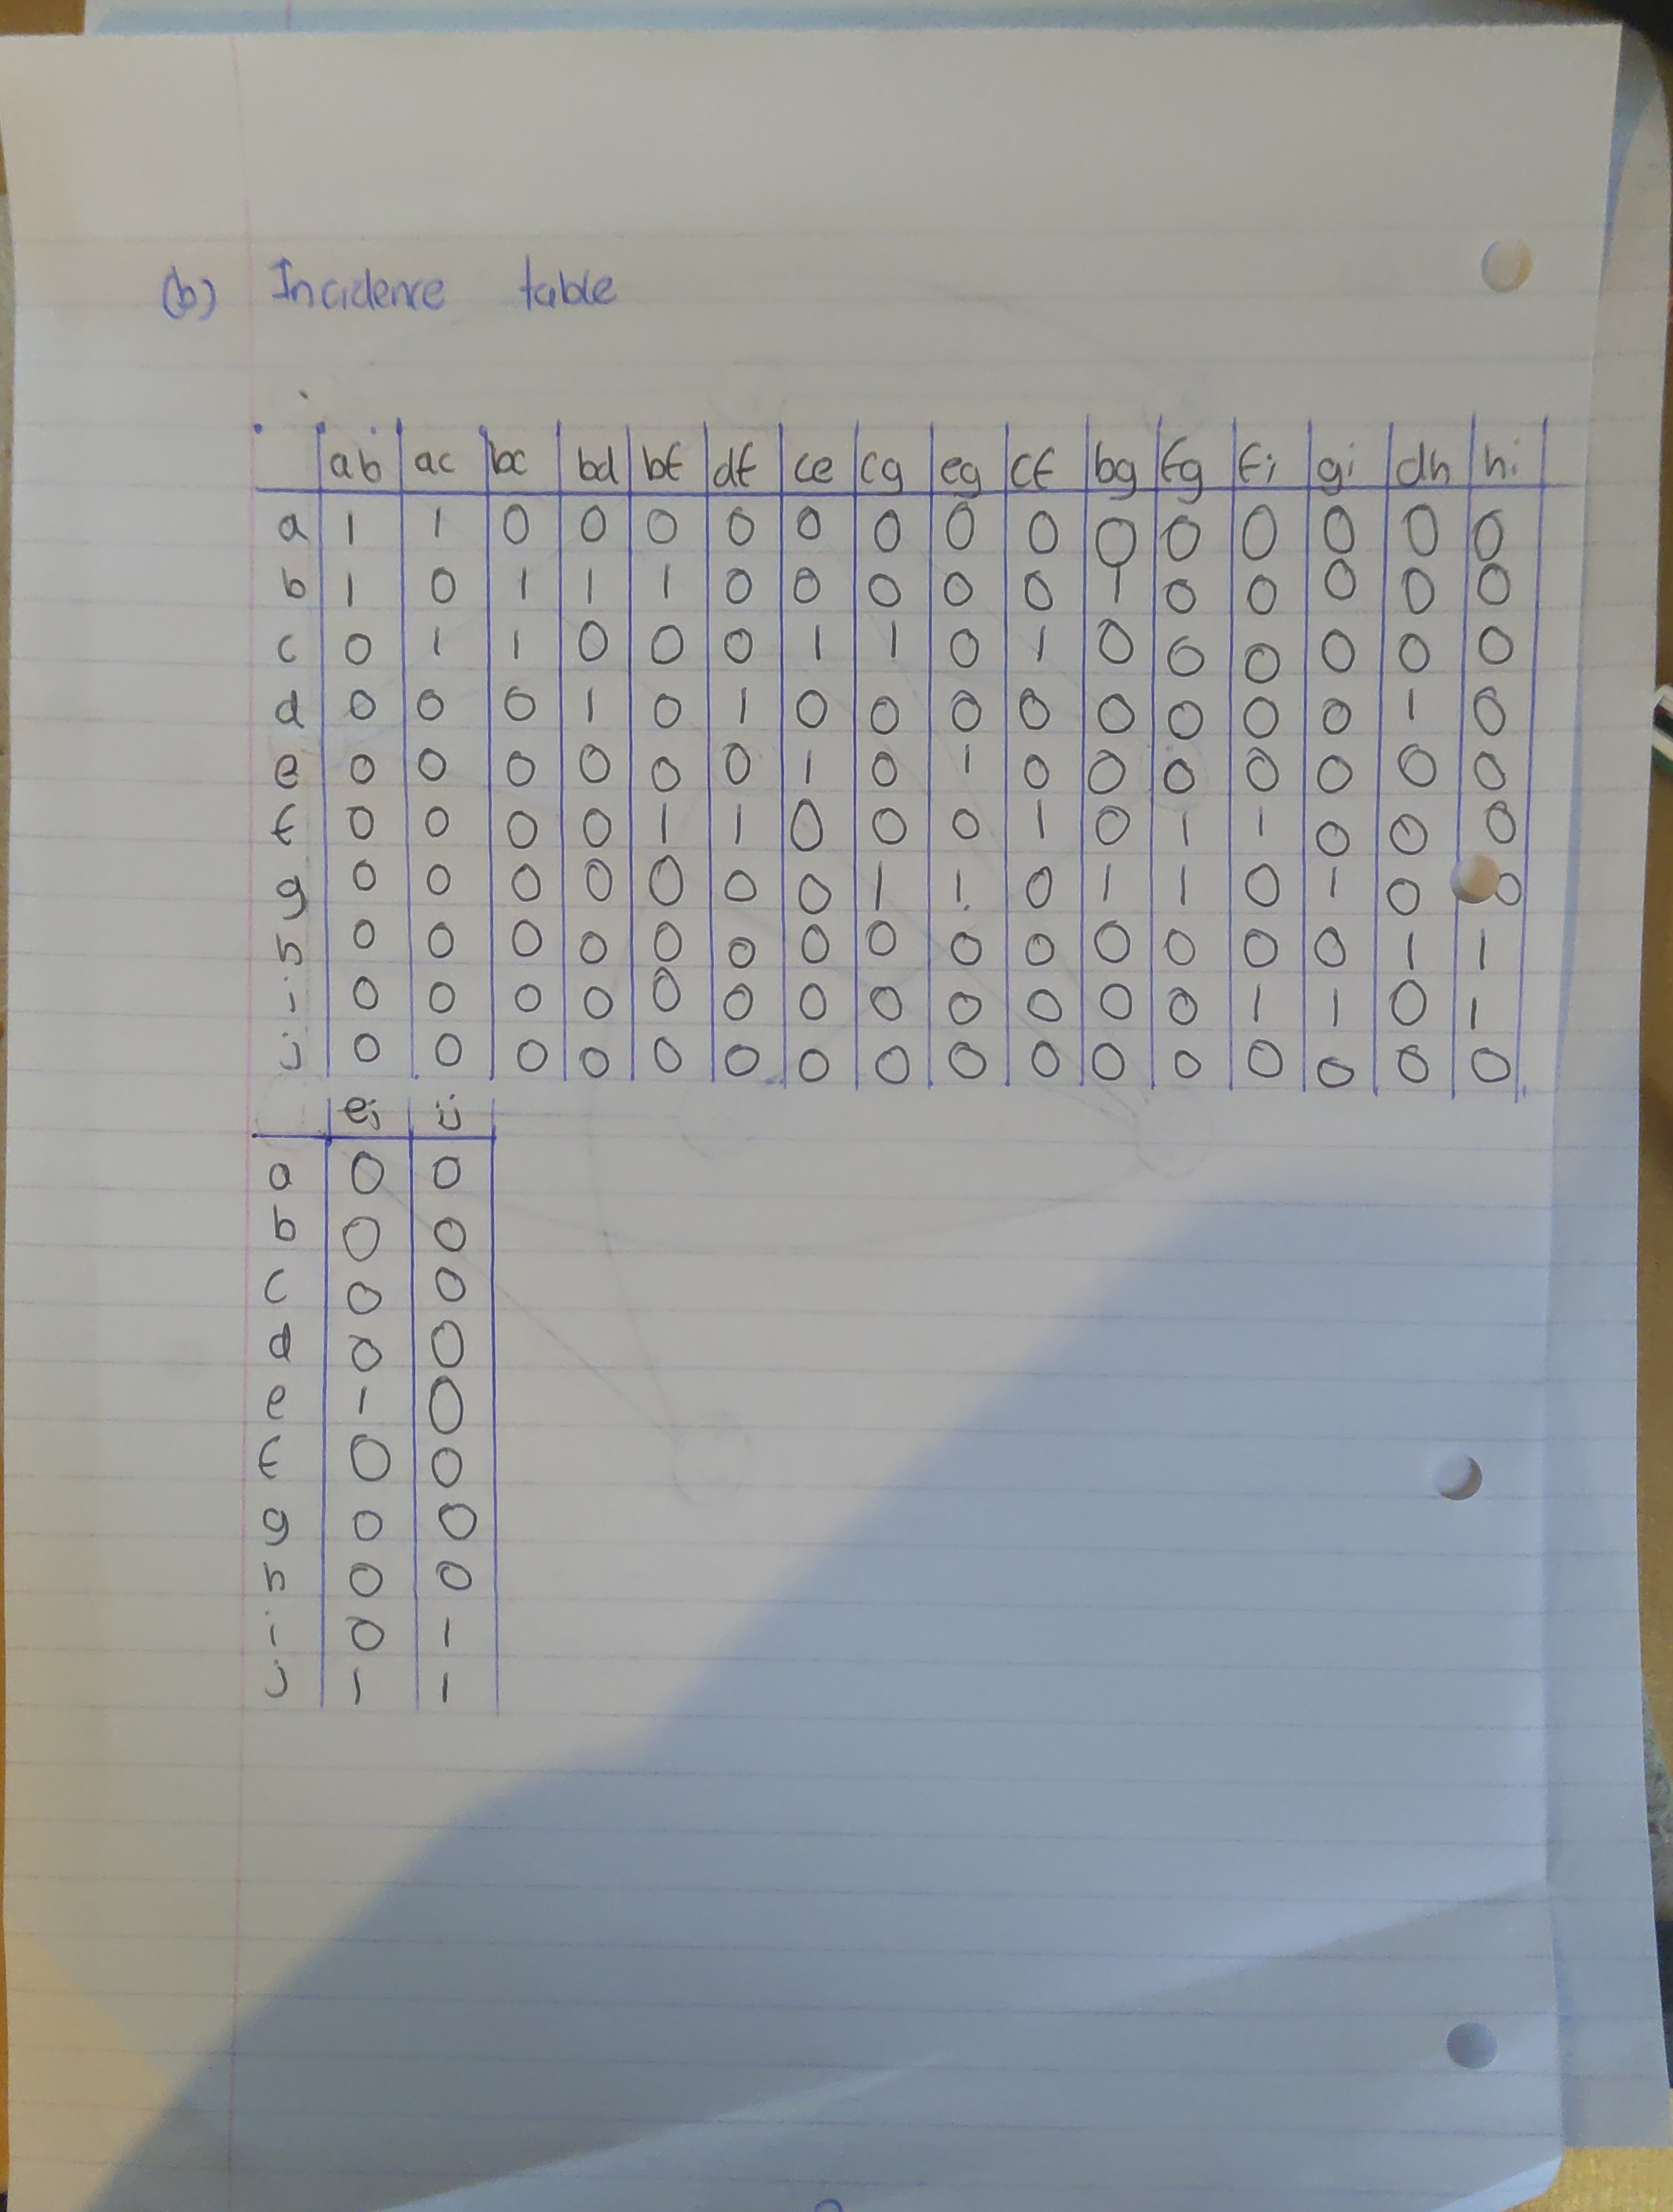 (b) Incidence table
ab ac bc bd bf df ce cg eg cf bg fg fi gi dh hi
a 1 1 0 0 0 0 0 0 0 0 0 0 0 0 0 0
b 1 0 1 1 1 0 0 0 0 0 1 0 0 0 0 0
c 0 1 1 0 0 0 1 1 0 1 0 0 0 0 0 0
d 0 0 0 1 0 1 0 0 0 0 0 0 0 0 1 0
e 0 0 0 0 0 0 1 0 1 0 0 0 0 0 0 0
f 0 0 0 0 1 1 0 0 0 1 0 1 1 0 0 0
g 0 0 0 0 0 0 0 1 1 0 1 1 0 1 0 0
h 0 0 0 0 0 0 0 0 0 0 0 0 0 0 1 1
i 0 0 0 0 0 0 0 0 0 0 0 0 1 1 0 1
j 0 0 0 0 0 0 0 0 0 0 0 0 0 0 0 0
ej ij
a 0 0
b 0 0
c 0 0
d 0 0
e 1 0
f 0 0
g 0 0
h 0 0
i 0 1
j 1 1